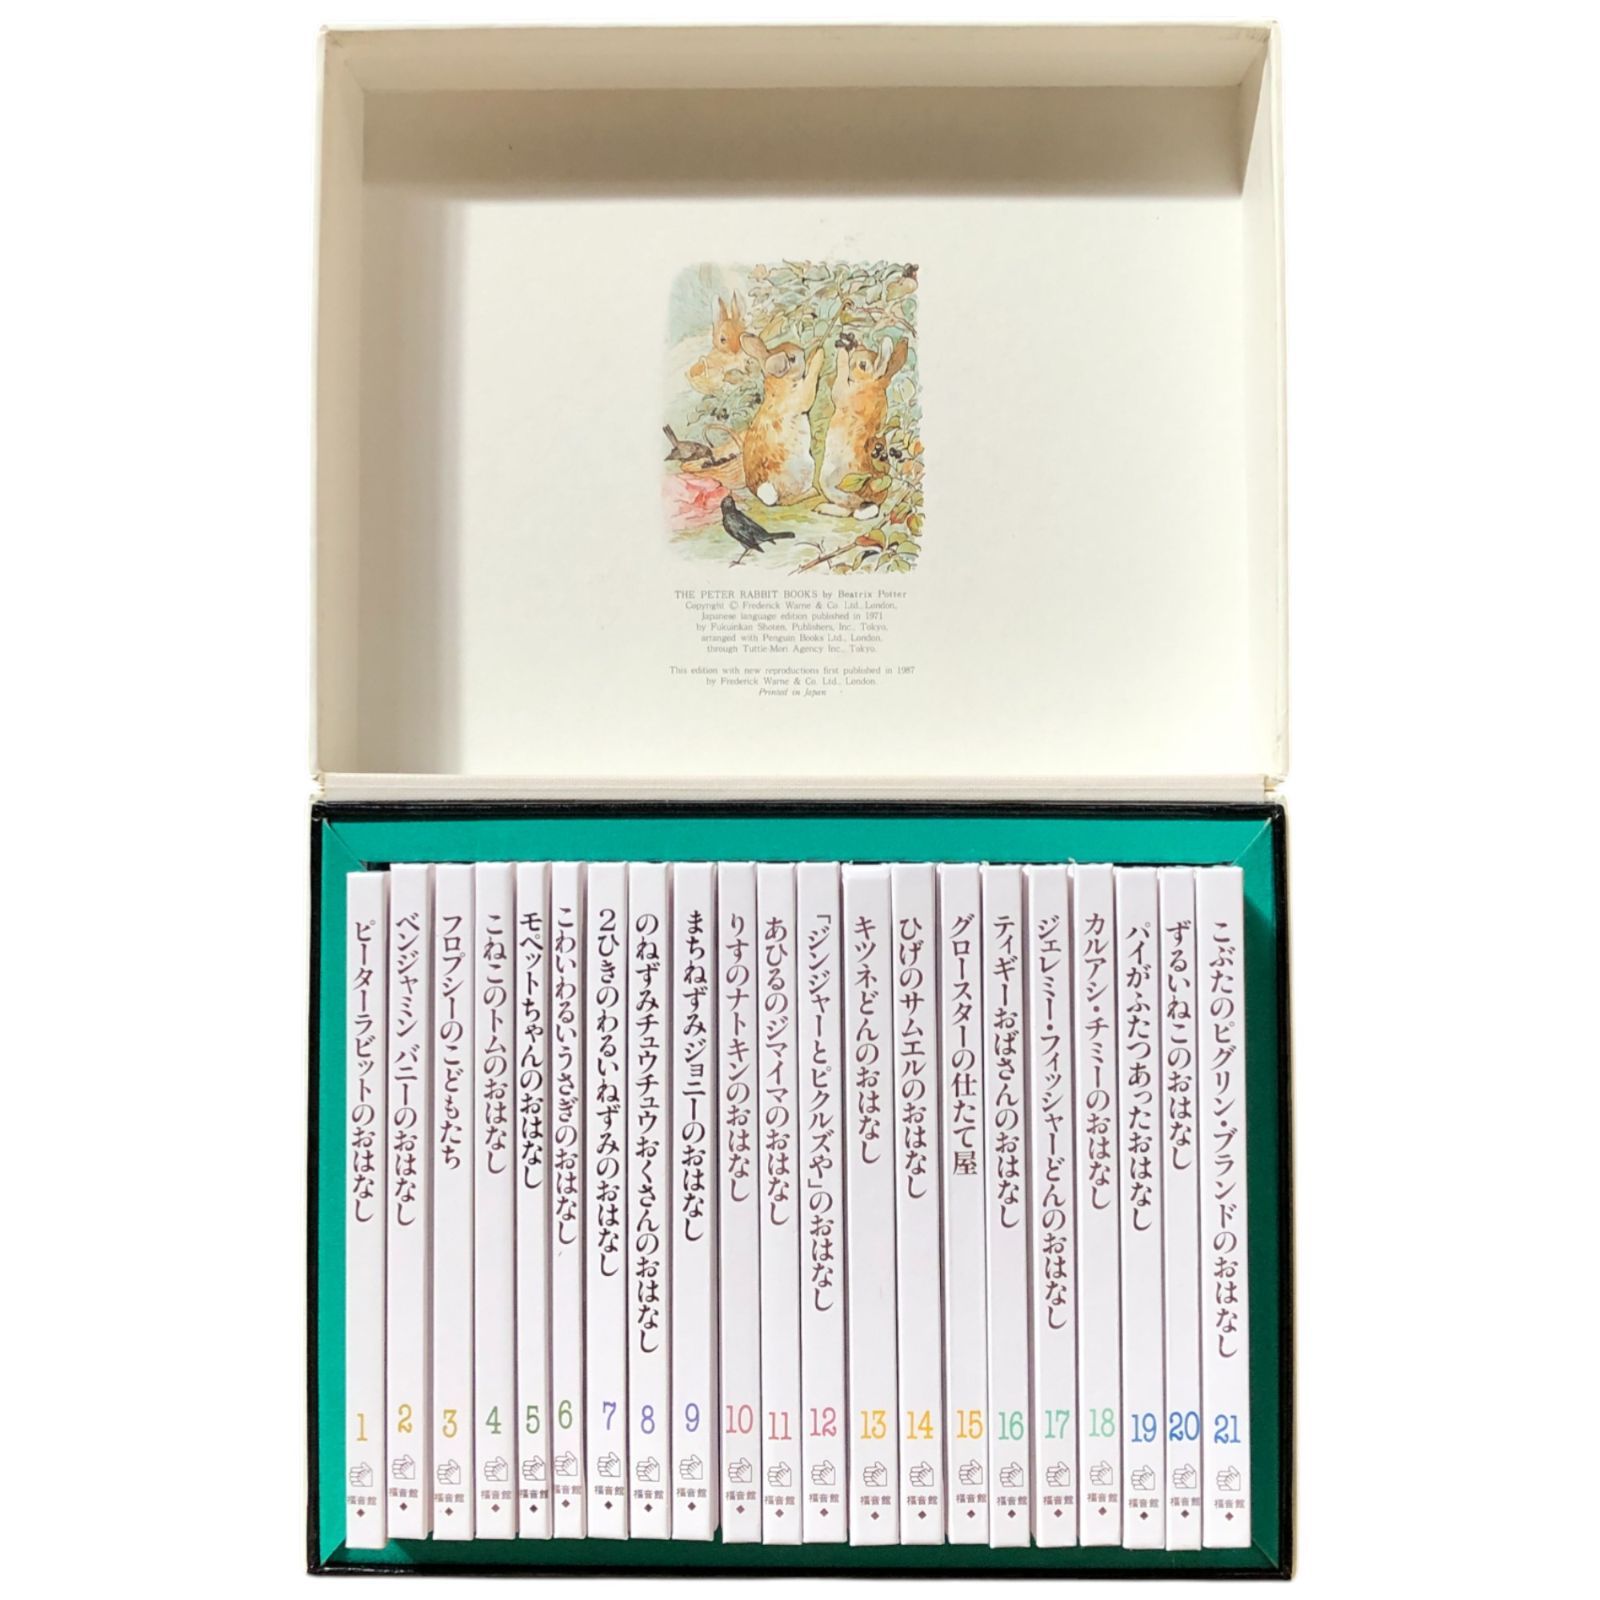 THE PETER RABBIT BOOKS by Beatrix Potter
Copyright © Frederick Warne & Co. Ltd., London,
Japanese language edition published in 1971
by Fukuinkan Shoten, Publishers, Inc., Tokyo,
arranged with Penguin Books Ltd., London,
through Tuttle-Mori Agency Inc., Tokyo.
This edition with new reproductions first published in 1987
by Frederick Warne & Co. Ltd., London.
Printed in Japan
ピーターラビットのおはなし
1
福音館
ベンジャミン バニーのおはなし
2
福音館
フロプシーのこどもたち
3
福音館
こねこのトムのおはなし
4
福音館
モペットちゃんのおはなし
5
福音館
こわいわるいうさぎのおはなし
6
福音館
2ひきのわるいねずみのおはなし
7
福音館
のねずみチュウチュウおくさんのおはなし
8
福音館
まちねずみジョニーのおはなし
9
福音館
りすのナトキンのおはなし
10
福音館
あひるのジマイマのおはなし
11
福音館
「ジンジャーとピクルズや」のおはなし
12
福音館
キツネどんのおはなし
13
福音館
ひげのサムエルのおはなし
14
福音館
グロースターの仕たて屋
15
福音館
ティギーおばさんのおはなし
16
福音館
ジェレミー・フィッシャーどんのおはなし
17
福音館
カルアシ・チミーのおはなし
18
福音館
パイがふたつあったおはなし
19
福音館
ずるいねこのおはなし
20
福音館
こぶたのピグリン・ブランドのおはなし
21
福音館